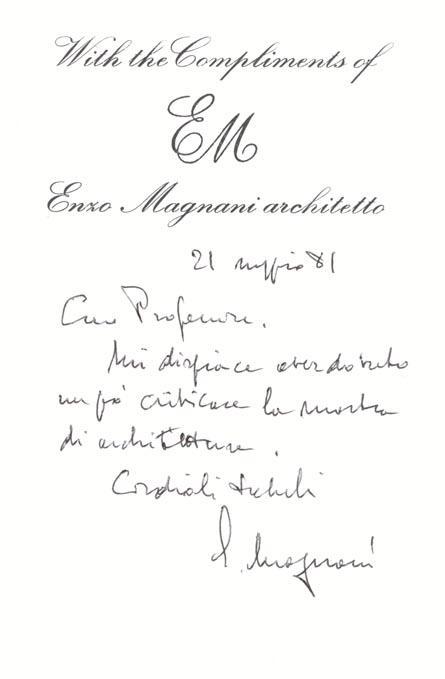 With the Compliments of
EM
Enzo Magnani architetto
21 maggio 81
Caro Professore,
Mi dispiace aver dovuto
un po' criticare la mostra
di architettura.
Cordiali saluti
E. Magnani